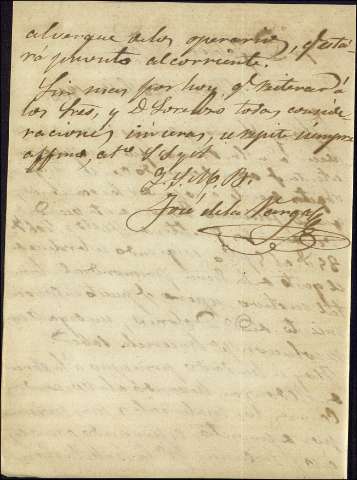 alvergue de los operarios, q. está-
rá pronto al corriente.
Sin mas por hoy, q. reiterar á
los Sres, y D. Lorenzo todas conside
raciones sinceras, se repite siempre
affmo, ato. S.
Q. S. M. B.
José de la Vargas